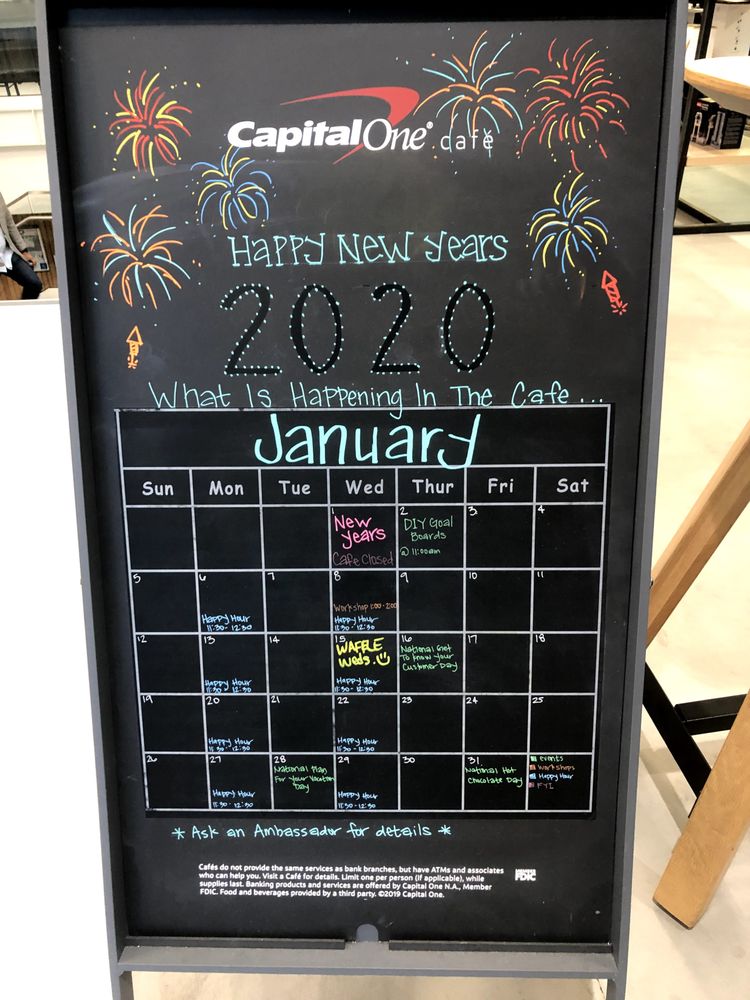 CapitalOne® café
Happy New Years
2020
What Is Happening In The Cafe...
January
Sun Mon Tue Wed Thur Fri Sat
1 2 3 4
New
Years
Cafe Closed
DIY Goal
Boards
@ 11:00am
5 6 7 8 9 10 11
Happy Hour
11:30 - 12:30
Workshop 1:00 - 2:00
Happy Hour
11:30 - 12:30
12 13 14 15 16 17 18
Happy Hour
11:30 - 12:30
WAFFLE
Weds.
Happy Hour
11:30 - 12:30
National Get
To Know Your
Customer Day
19 20 21 22 23 24 25
Happy Hour
11:30 - 12:30
Happy Hour
11:30 - 12:30
26 27 28 29 30 31
Happy Hour
11:30 - 12:30
National Plan
For Your Vacation
Day
Happy Hour
11:30 - 12:30
National Hot
Chocolate Day
Events
Workshops
Happy Hour
FYI
* Ask an Ambassador for details *
Cafés do not provide the same services as bank branches, but have ATMs and associates
who can help you. Visit a Café for details. Limit one per person (if applicable), while
supplies last. Banking products and services are offered by Capital One N.A., Member
FDIC. Food and beverages provided by a third party. ©2019 Capital One.
MEMBER
FDIC